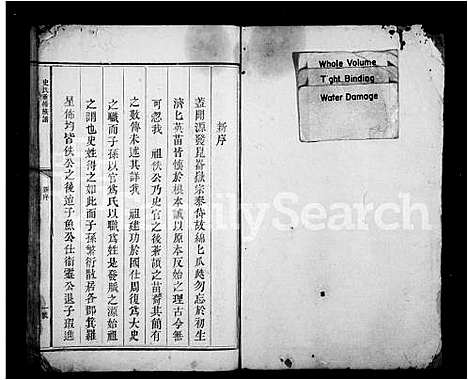 史氏重修族譜
新序
一號
新序
蓋聞源發崑崙嶽宗泰岱故綿匕瓜瓞勿忘於初生
濟匕英苗皆懷於根本誠以原本反始之理古今無
可忽我 祖佚公乃史官之後蒼頡之苗裔其間有
之數傳未述其詳我 祖建功於國仕周復爲大史
之職而子孫以官爲氏以職爲姓是發脈之源始祖
之謂也史姓得之如此而子孫繁衍散居各郡箕羅
星佈均皆佚公之後迨子魚公仕衛靈公退子瑕進
Whole Volume
Tight Binding
Water Damage
FamilySearch